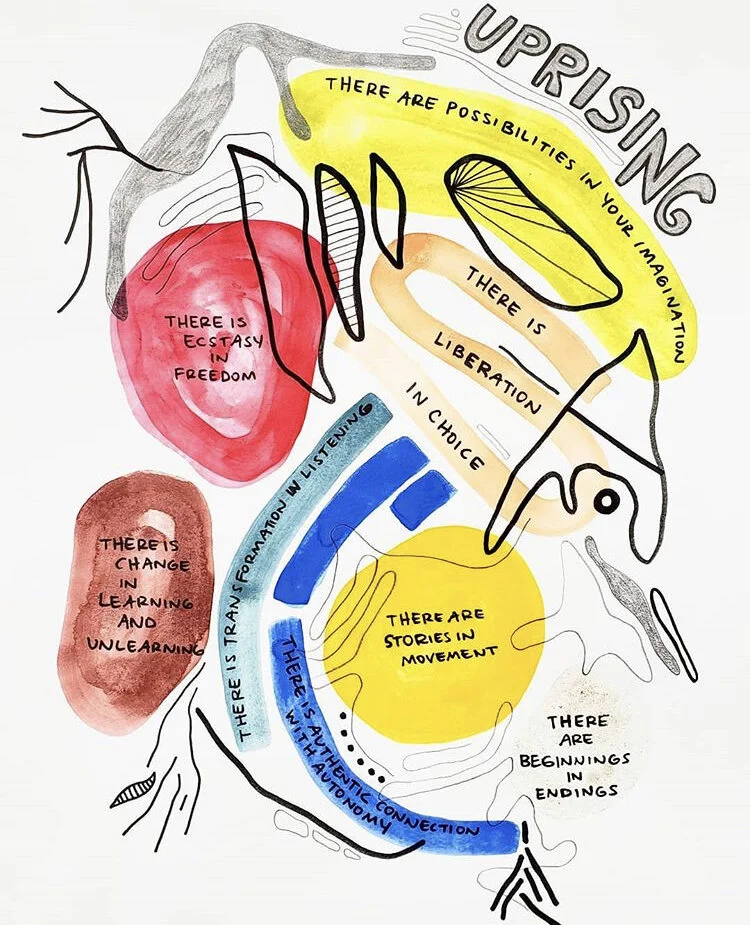 UPRISING
THERE ARE POSSIBILITIES IN YOUR IMAGINATION
THERE IS
ECSTASY
IN
FREEDOM
THERE IS
LIBERATION
IN CHOICE
THERE IS TRANSFORMATION IN LISTENING
THERE IS
CHANGE
IN
LEARNING
AND
UNLEARNING
THERE ARE
STORIES IN
MOVEMENT
THERE IS AUTHENTIC CONNECTION
WITH AUTONOMY
THERE
ARE
BEGINNINGS
IN
ENDINGS